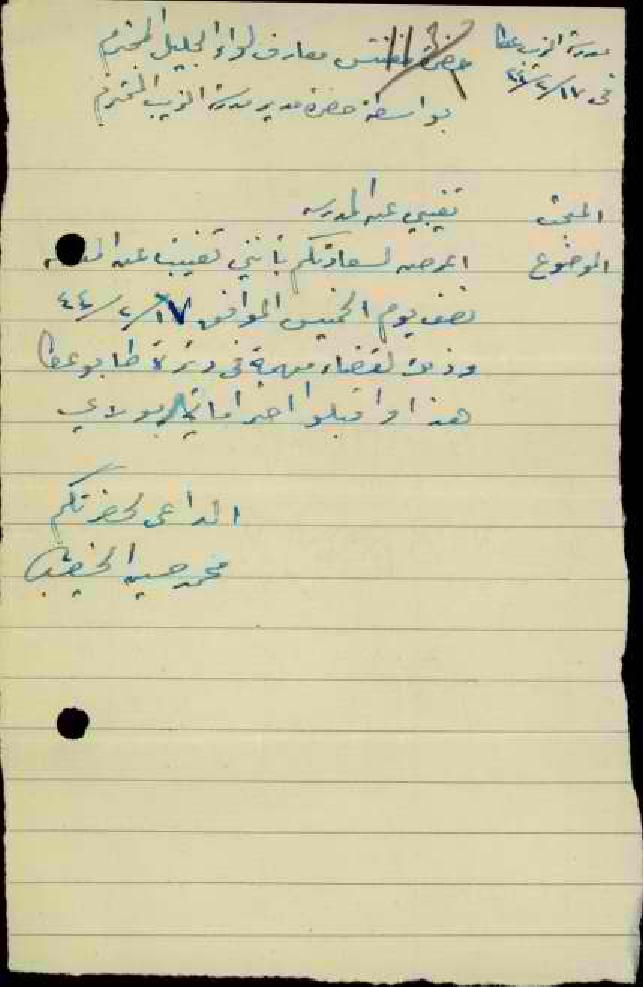 مدرسة الزيب عكا
في ١٧/٢/٤٤
حضرة مفتش معارف لواء الجليل المحترم
بواسطة حضرة مدير مدرسة الزيب المحترم
المبحث تغيبي عن المدرسه
الموضوع اعرض لسعادتكم بأنني تغيبت عن
نصف يوم الخميس الموافق ١٧/٢/٤٤
وذلك لقضاء مهمة في دائرة طابو عكا
هذا واقبلوا احتراماتي يا مولاي
الداعي لحضرتكم
محمد حسين الخطيب